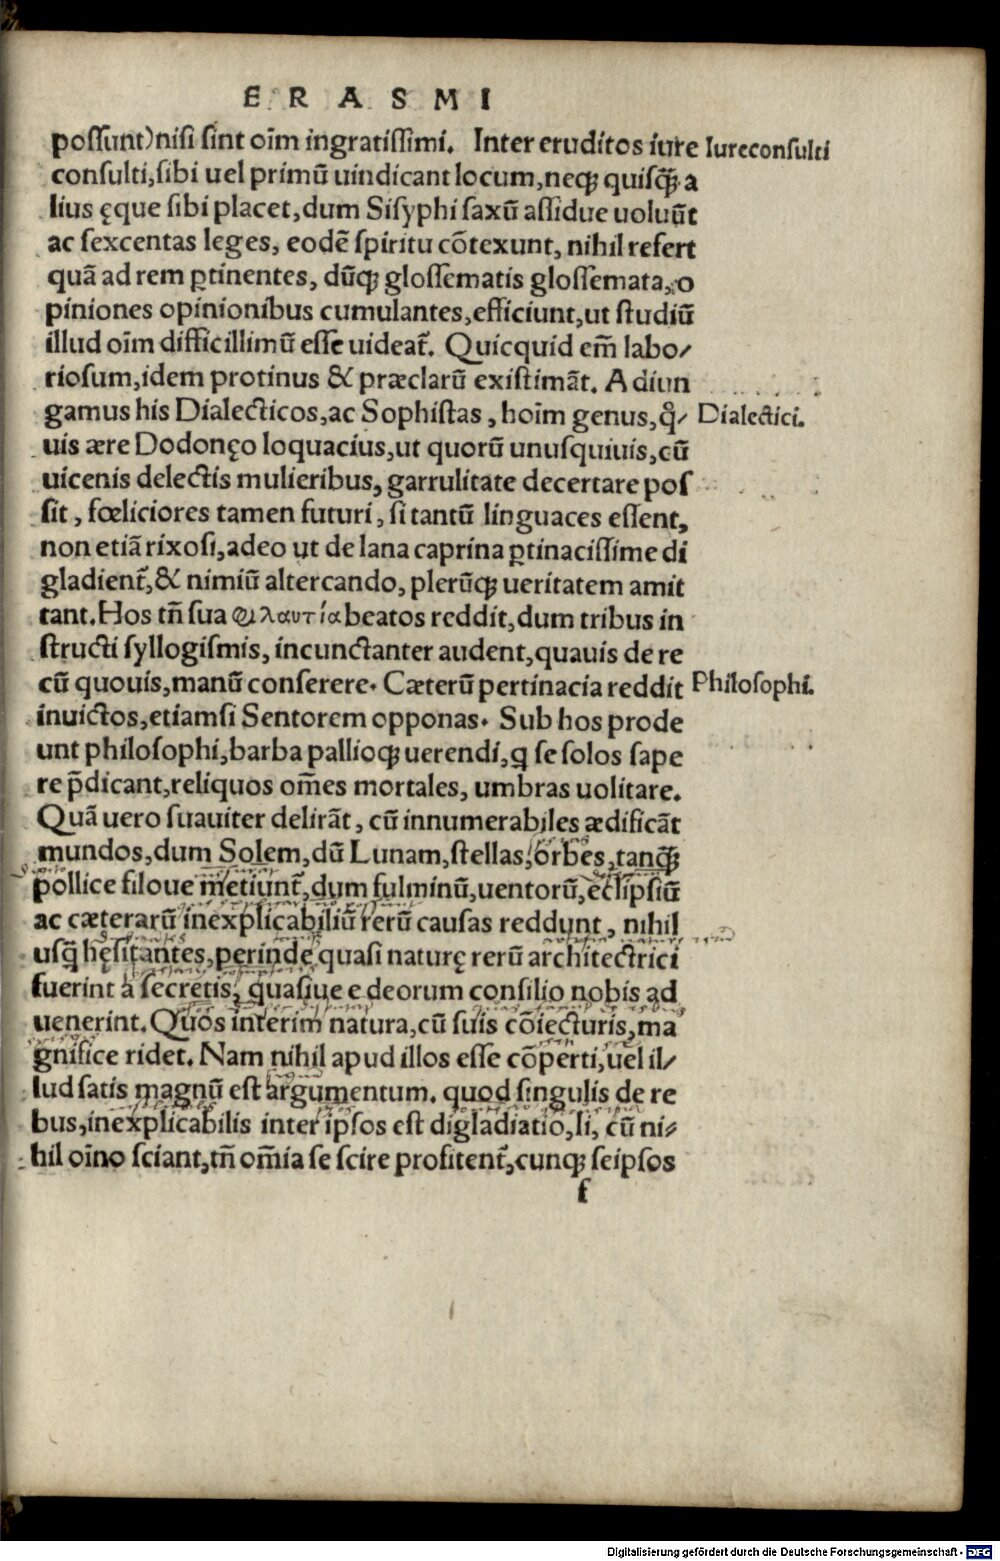 ERASMI
possunt) nisi sint oīm ingratissimi. Inter eruditos iure
Iureconsulti
consulti, sibi uel primū uindicant locum, neqꝫ quisq̄ꝫ a
lius ęque sibi placet, dum Sisyphi saxū assidue uoluūt
ac sexcentas leges, eodē spiritu cōtexunt, nihil refert
quā ad rem ꝑtinentes, dūqꝫ glossematis glossemata, o
piniones opinionibus cumulantes, efficiunt, ut studiū
illud oīm difficillimū esse uideat̄. Quicquid em̄ labo/
riosum, idem protinus & præclarū existimāt. Adiun
gamus his Dialecticos, ac Sophistas, hoīm genus, q̊/
Dialectici.
uis ære Dodonęo loquacius, ut quorū unusquiuis, cū
uicenis delectis mulieribus, garrulitate decertare pos
sit, fœliciores tamen futuri, si tantū linguaces essent,
non etiā rixosi, adeo ut de lana caprina ꝑtinacissime di
gladient̄, & nimiū altercando, plerūqꝫ ueritatem amit
tant. Hos tn̄ sua φιλαυτία beatos reddit, dum tribus in
structi syllogismis, incunctanter audent, quauis de re
cū quouis, manū conserere. Cæterū pertinacia reddit
Philosophi.
inuictos, etiamsi Sentorem opponas. Sub hos prode
unt philosophi, barba pallioqꝫ uerendi, q se solos sape
re p̄dicant, reliquos om̄es mortales, umbras uolitare.
Quā uero suauiter delirāt, cū innumerabiles ædificāt
mundos, dum Solem, dū Lunam, stellas, orbes, tanq̄ꝫ
pollice filoue metiunt̄, dum fulminū, uentorū, eclipsiū
ac cæterarū inexplicabiliū rerū causas reddunt, nihil
usq̄ hęsitantes, perinde quasi naturę rerū architectrici
fuerint à secretis, quasiue e deorum consilio nobis ad
uenerint. Quos interim natura, cū suis cōiecturis, ma
gnifice ridet. Nam nihil apud illos esse cōperti, uel il/
lud satis magnū est argumentum. quod singulis de re
bus, inexplicabilis inter ipsos est digladiatio, Ii, cū ni/
hil oīno sciant, tn̄ om̄ia se scire profitent̄, cunqꝫ seipsos
f
Digitalisierung gefördert durch die Deutsche Forschungsgemeinschaft - DFG